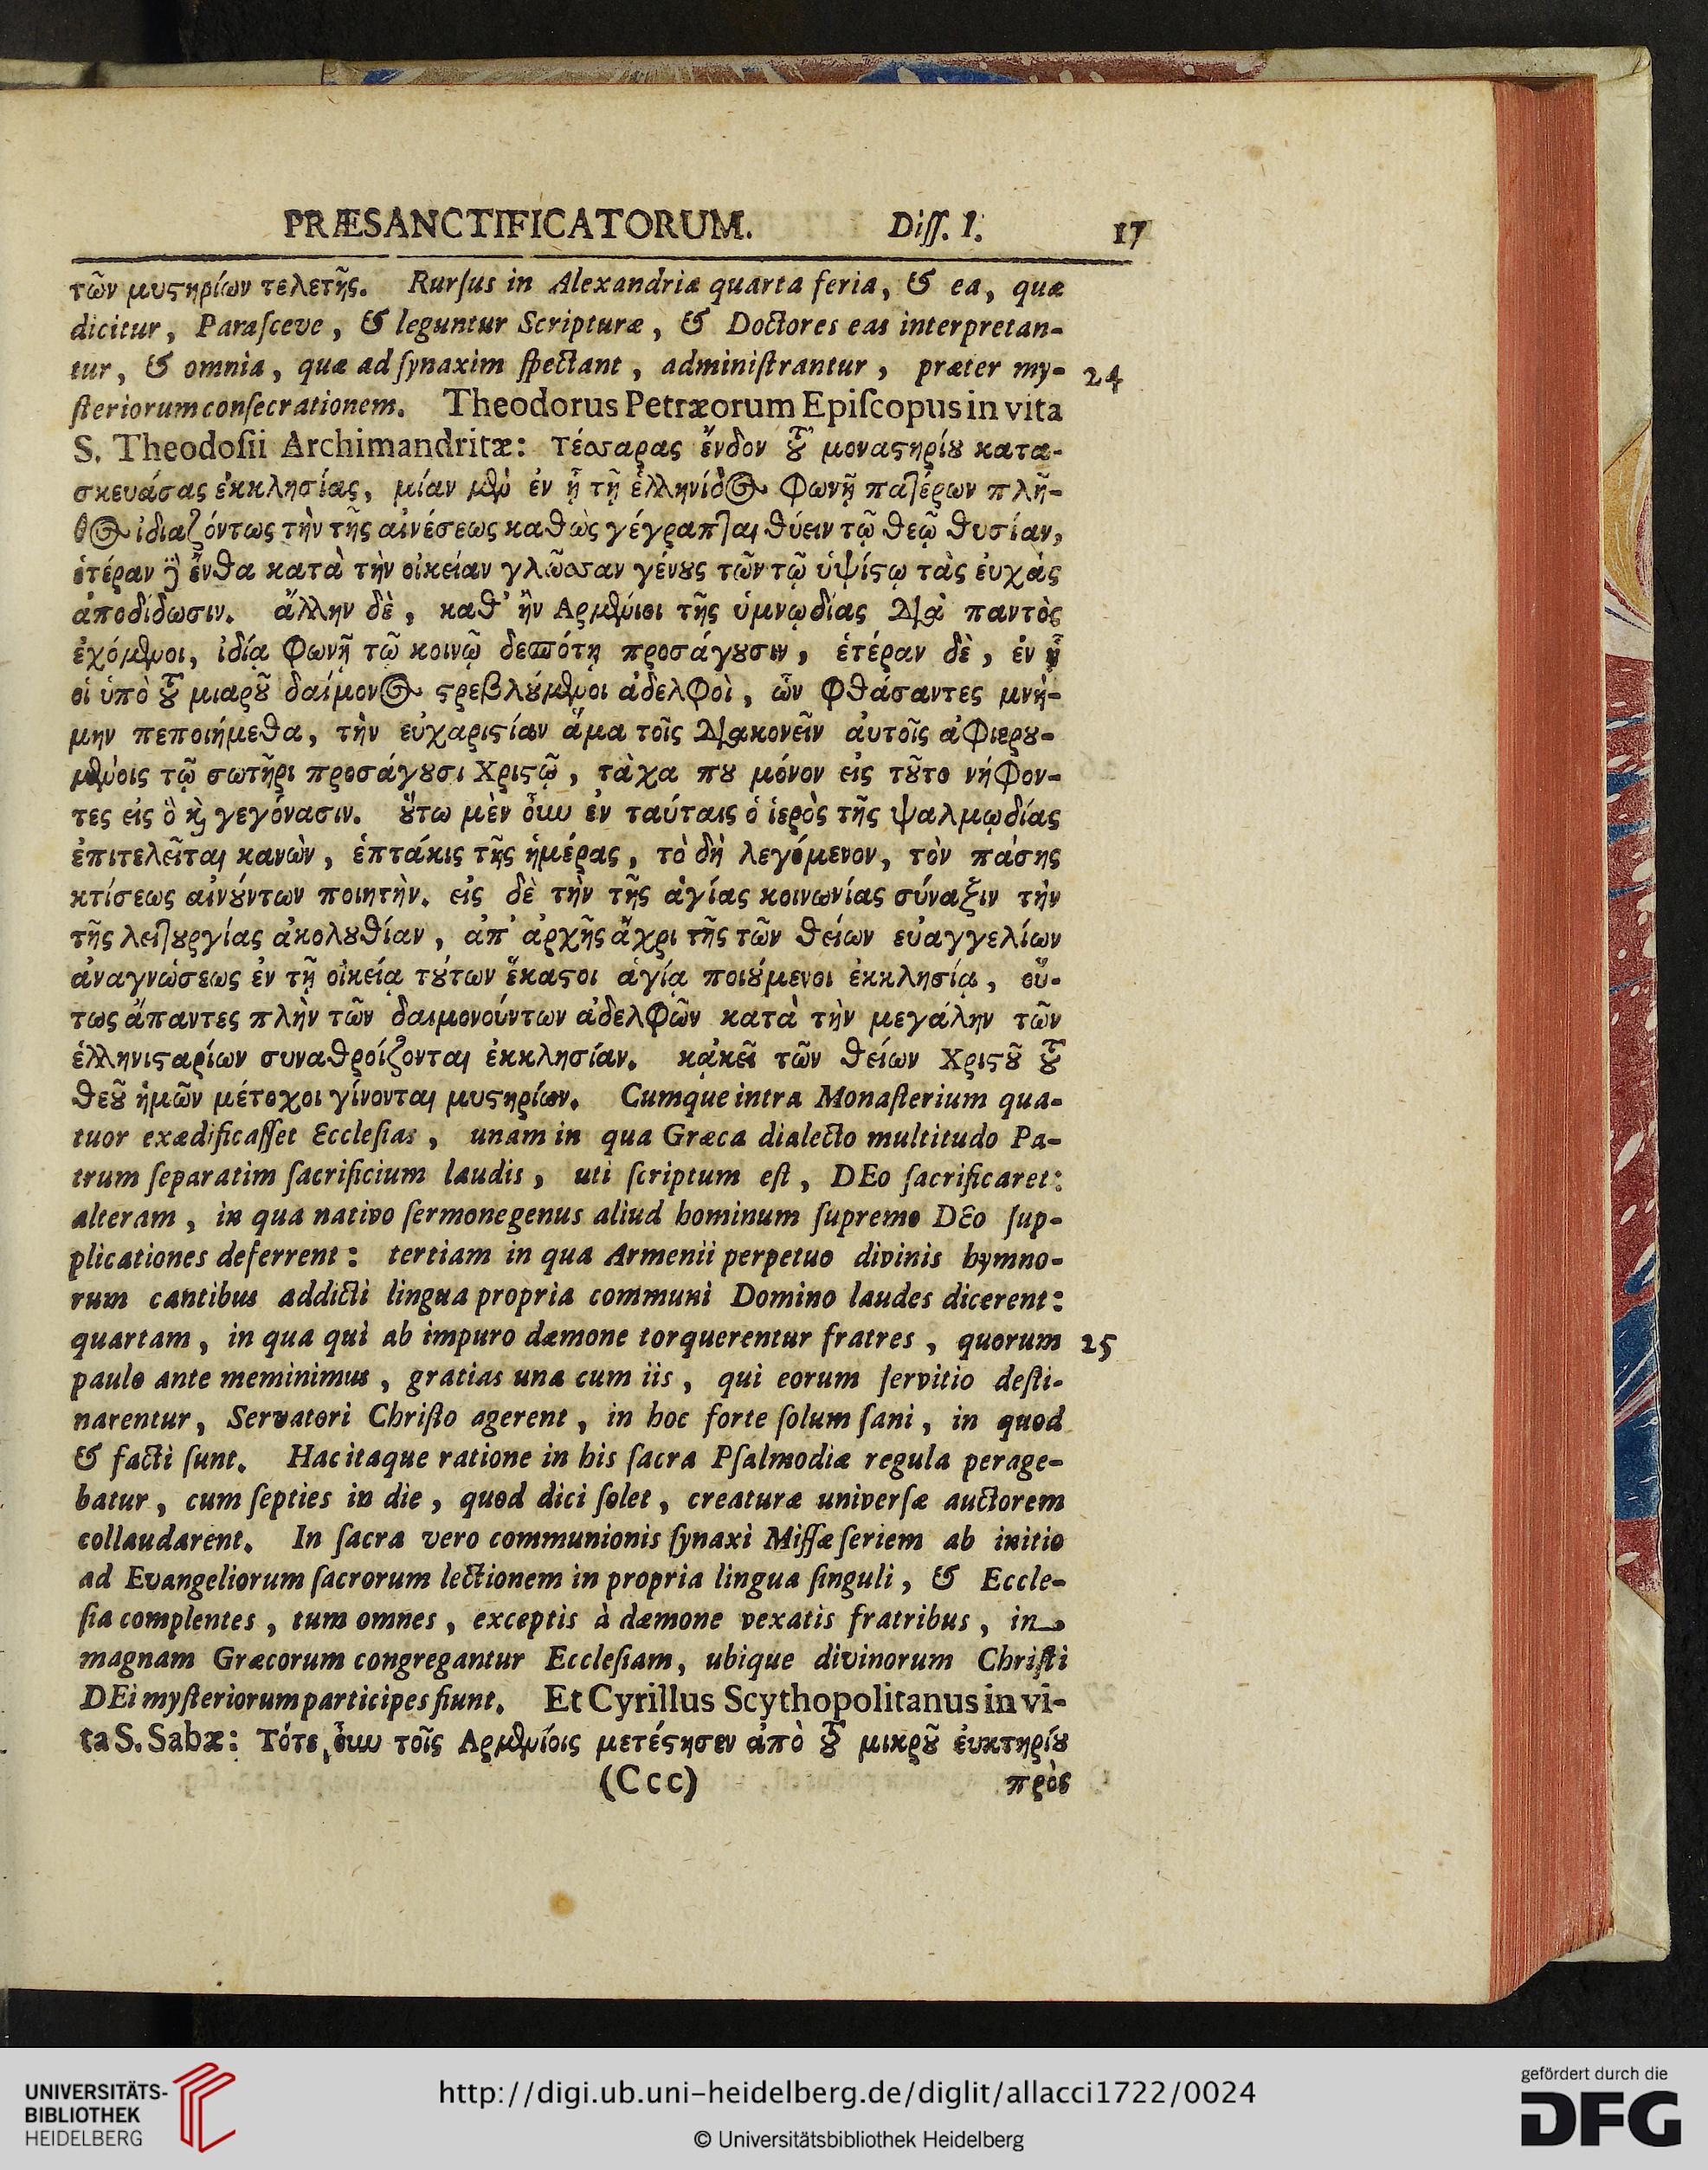 PRÆSANCTIFICATORUM. Diſſ. I. 17
τῶν μυϛηρίων τελετῆς. Rurſus in Alexandria quarta feria, & ea, quæ
dicitur, Paraſceve, & leguntur Scripturæ, & Doctores eas interpretan-
tur, & omnia, quæ ad ſynaxim ſpectant, adminiſtrantur, præter my- 24
ſteriorum conſecrationem. Theodorus Petræorum Epiſcopus in vita
S. Theodoſii Archimandritæ: Τέσσαρας ἔνδον τȣ͂ μοναϛηρίȣ κατα-
σκευάσας ἐκκλησίας, μίαν μὲν ἐν ᾗ τῇ ἑλληνίδος φωνῇ πατέρων πλῆ-
θος ἰδιαζόντως τὴν τῆς αἰνέσεως καθὼς γέγραπται θύειν τῷ θεῷ θυσίαν,
ἑτέραν δὲ ἔνθα κατὰ τὴν οἰκείαν γλῶσσαν γένȣς τῶν τῷ ὑψίϛῳ τὰς ἐυχάς
ἀποδίδωσιν. ἄλλην δὲ, καθ' ἣν Αρμένιοι τῆς ὑμνῳδίας διὰ παντὸς
ἐχόμενοι, ἰδίᾳ φωνῇ τῶ κοινῷ δεσπότῃ προσάγȣσιν, ἑτέραν δὲ, ἐν ᾗ
οἱ ὑπὸ τȣ͂ μιαρȣ͂ δαίμονος ϛρεβλȣ́μενοι ἀδελφοὶ, ὧν φθάσαντες μνή-
μην πεποιήμεθα, τὴν εὐχαριϛίαν ἅμα τοῖς διακονεῖν ἀυτοῖς ἀφιερȣ-
μένοις τῷ σωτῆρι προσάγȣσι Χριϛῷ, τάχα πȣ μόνον εἰς τȣ͂το νήφον-
τες εἰς ὃ ϗ γεγόνασιν. ȣ̔́τω μὲν ȣ̓͂ν ἐν ταύταις ὁ ἱερὸς τῆς ψαλμῳδίας
ἐπιτελεῖται κανὼν, ἑπτάκις τῆς ἡμέρας, τὸ δὴ λεγόμενον, τὸν πάσης
κτίσεως αἰνȣ́ντων ποιητὴν. εἰς δὲ τὴν τῆς ἁγίας κοινωνίας σύναξιν τὴν
τῆς λειτȣργίας ἀκολȣθίαν, ἀπ' ἀρχῆς ἄχρι τῆς τῶν θείων εὐαγγελίων
ἀναγνώσεως ἐν τῇ οἰκείᾳ τȣ́των ἕκαϛοι ἁγίᾳ ποιȣ́μενοι ἐκκλησίᾳ, οὕ-
τως ἅπαντες πλὴν τῶν δαιμονούντων ἀδελφῶν κατὰ τὴν μεγάλην τῶν
ἑλληνιϛαρίων συναθροίζονται ἐκκλησίαν. κᾀκεῖ τῶν θείων Χριϛȣ͂ τȣ͂
θεȣ͂ ἡμῶν μέτοχοι γίνονται μυϛηρίων. Cumque intra Monaſterium qua-
tuor exædificaſſet Eccleſias, unam in qua Græca dialecto multitudo Pa-
trum ſeparatim ſacrificium laudis, uti ſcriptum eſt, DEo ſacrificaret:
alteram, in qua nativo ſermone genus aliud hominum ſupremo DEo ſup-
plicationes deferrent: tertiam in qua Armenii perpetuo divinis hymno-
rum cantibus addicti lingua propria communi Domino laudes dicerent:
quartam, in qua qui ab impuro dæmone torquerentur fratres, quorum 25
paulo ante meminimus, gratias una cum iis, qui eorum ſervitio deſti-
narentur, Servatori Chriſto agerent, in hoc forte ſolum ſani, in quod
& facti ſunt. Hac itaque ratione in his ſacra Pſalmodiæ regula perage-
batur, cum ſepties in die, quod dici ſolet, creaturæ univerſæ auctorem
collaudarent. In ſacra vero communionis ſynaxi Miſſæ ſeriem ab initio
ad Evangeliorum ſacrorum lectionem in propria lingua ſinguli, & Eccle-
ſia complentes, tum omnes, exceptis à dæmone vexatis fratribus, in
magnam Græcorum congregantur Eccleſiam, ubique divinorum Chriſti
DEi myſteriorum participes fiunt. Et Cyrillus Scythopolitanus in vi-
ta S. Sabæ: Τότε ȣ̓͂ν τοῖς Αρμενίοις μετέϛησεν ἀπὸ τȣ͂ μικρȣ͂ ἐυκτηρίȣ
(Ccc) πρὸς
UNIVERSITÄTS-
BIBLIOTHEK
HEIDELBERG
http://digi.ub.uni-heidelberg.de/diglit/allacci1722/0024
© Universitätsbibliothek Heidelberg
gefördert durch die
DFG